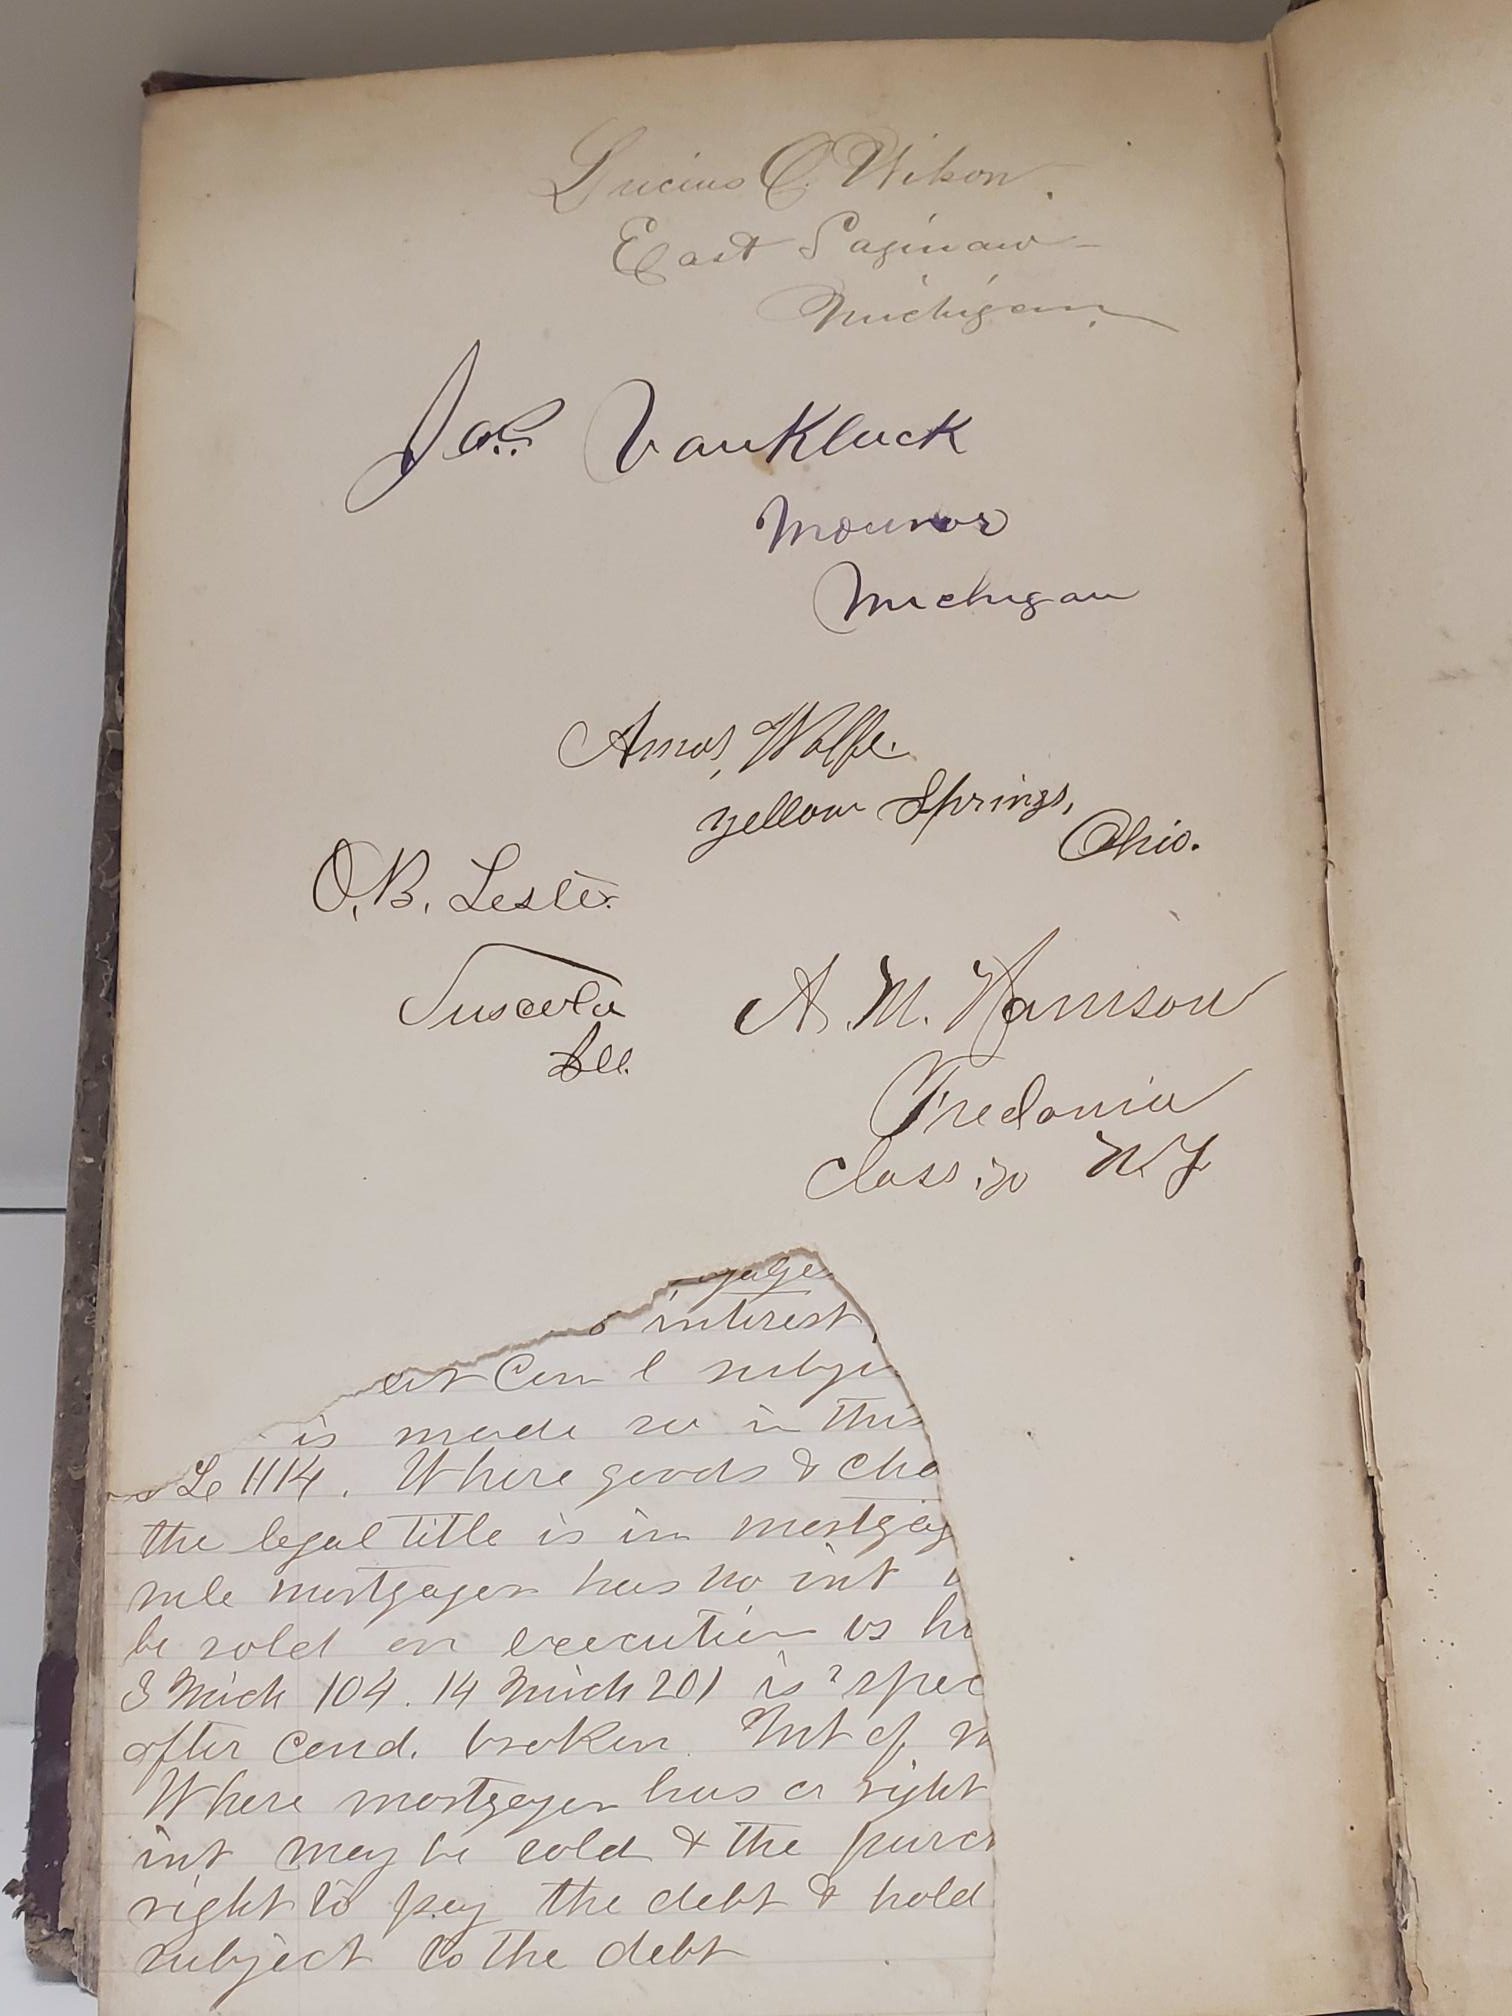 Lucius C. Wilson.
East Saginaw
Michigan.
Jas. VanKluck
Michigan
Amos, Wolfe.
Yellow Springs,
Ohio.
O. B. Lester
Tuscola
Ill.
A. M. Harrison
Fredonia
Class '70 N.Y.
interest
subje
is made so in this
Le 1114. Where goods & cha
the legal title is in mortgag
rule mortgager has no int
be sold on execution vs hi
3 Mich 104. 14 Mich 201 is ? spec
after cond. broken. Int of m
Where mortgager has a right
int may be sold & the purch
right to pay the debt & hold
subject to the debt